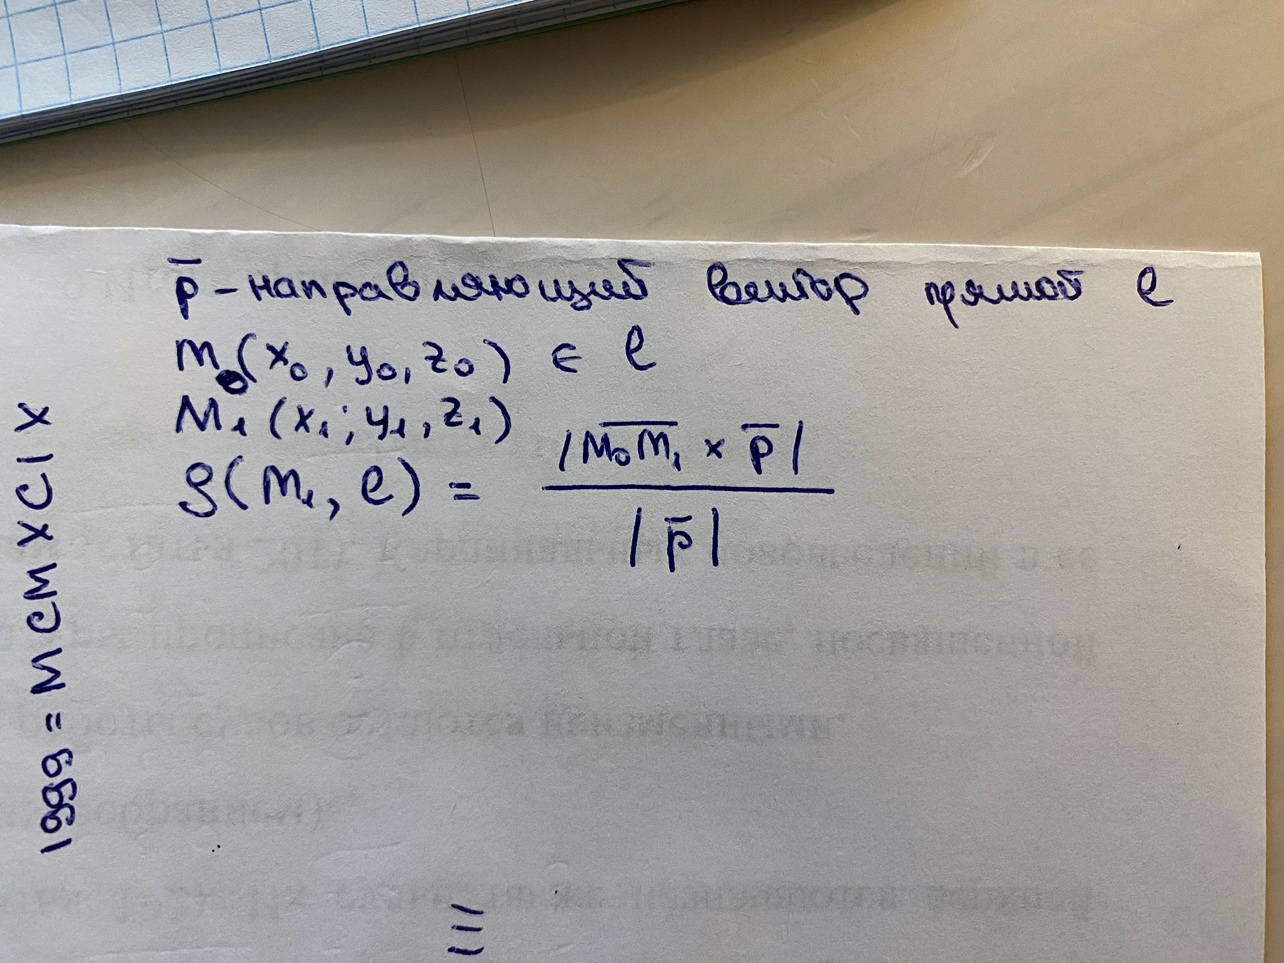 p̅ - направляющий вектор прямой ℓ
M₀(x₀, y₀, z₀) ∈ ℓ
M₁(x₁; y₁, z₁)
ρ(M₁, ℓ) = |M₀M₁ × p̅| / |p̅|
1999 = MCMXCIX